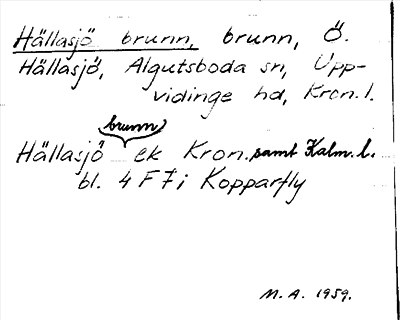 Hällasjö brunn, brunn, Ö.
Hällasjö, Algutsboda sn, Upp-
vidinge hd, Kron. l.
brunn
Hällasjö ek Kron. samt Kalm. l.
bl. 4 F 7 i Kopparfly
M. A. 1959.